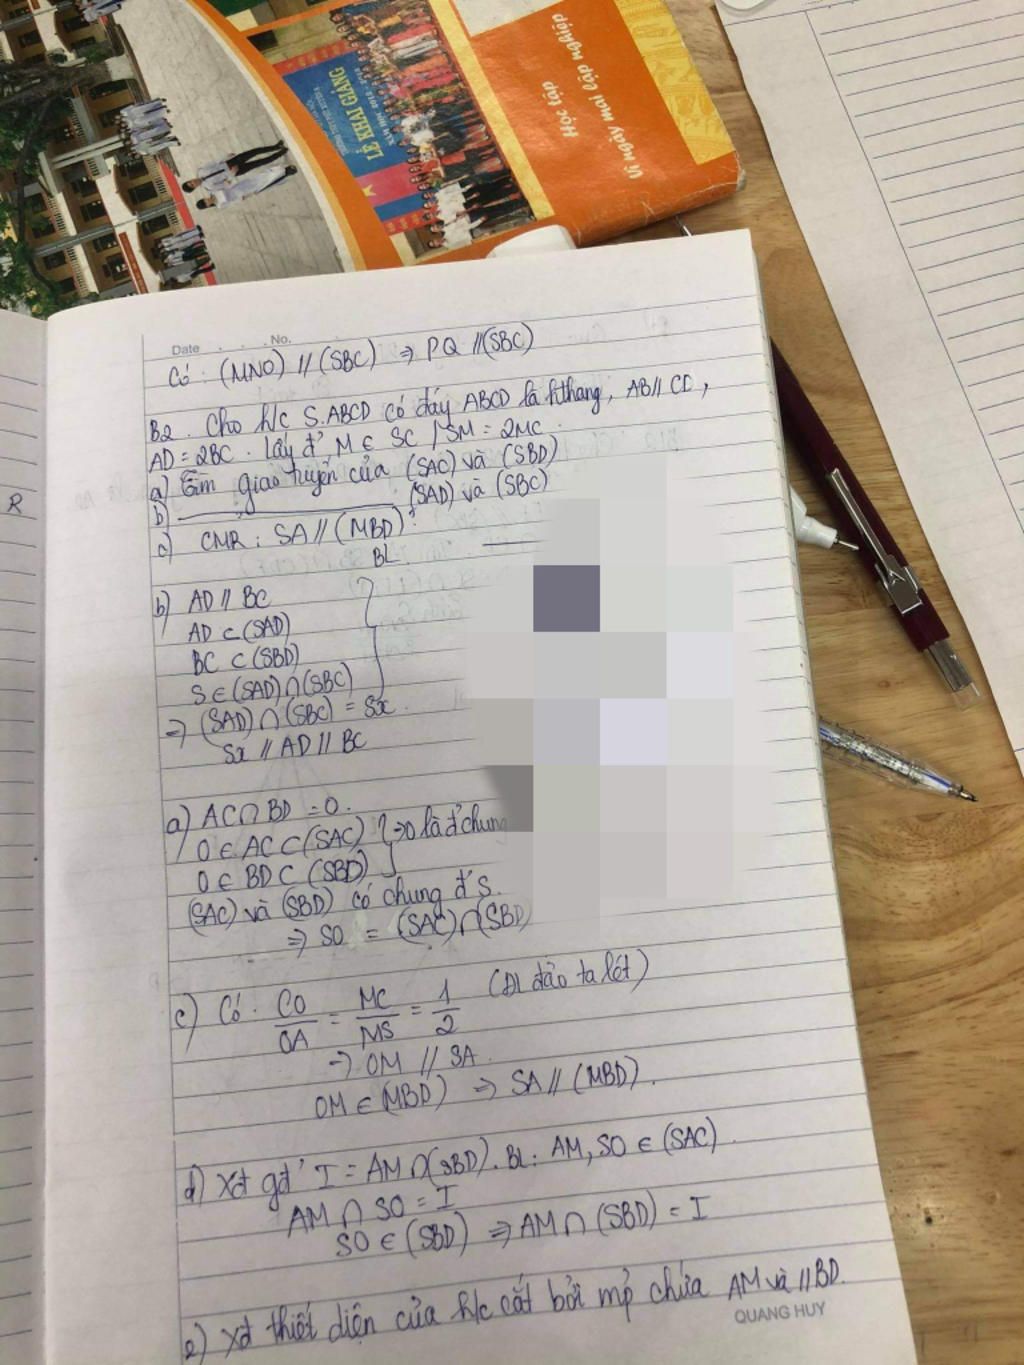 Học tập
Vì ngày mai lập nghiệp
LỄ KHAI GIẢNG
R
Date . . . No.
Có : (MNO) // (SBC) ⇒ PQ // (SBC)
B2. Cho h/c S.ABCD có đáy ABCD là hthang, AB // CD,
AD = 2BC. Lấy đ' M ∈ SC / SM = 2MC.
a) Tìm giao tuyến của (SAC) và (SBD)
b) ________ (SAD) và (SBC)
c) CMR : SA // (MBD)?
BL.
b) AD // BC
AD ⊂ (SAD)
BC ⊂ (SBD)
S ∈ (SAD) ∩ (SBC)
⇒ (SAD) ∩ (SBC) = Sx.
Sx // AD // BC
a) AC ∩ BD = O.
O ∈ AC ⊂ (SAC) } ⇒ O là đ' chung
O ∈ BD ⊂ (SBD)
(SAC) và (SBD) có chung đ' S.
⇒ SO = (SAC) ∩ (SBD)
c) Có. CO/OA = MC/MS = 1/2 (Đl đảo ta lét)
⇒ OM // SA.
OM ∈ (MBD) ⇒ SA // (MBD).
d) Xđ gđ' I = AM ∩ (SBD). BL: AM, SO ∈ (SAC).
AM ∩ SO = I
SO ∈ (SBD) ⇒ AM ∩ (SBD) = I
e) Xđ thiết diện của h/c cắt bởi mp chứa AM và // BD.
QUANG HUY